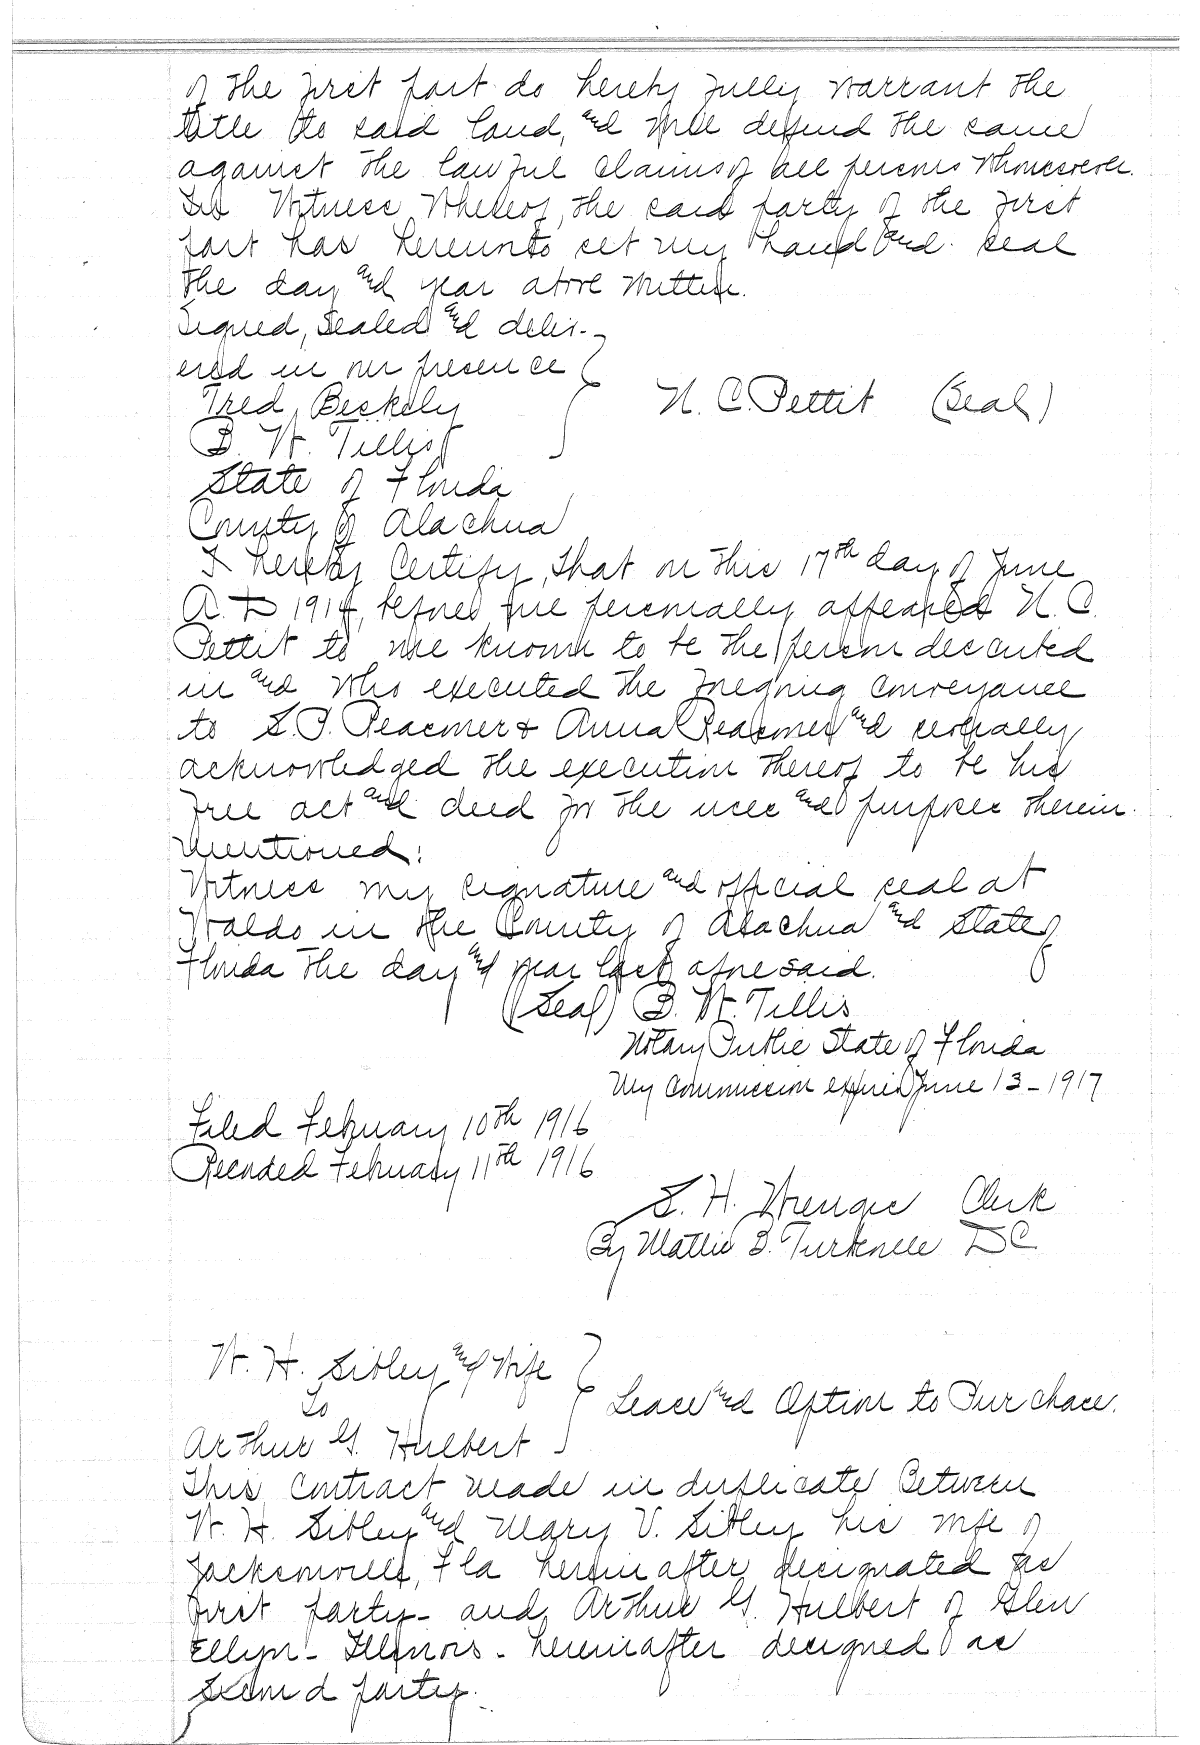 of the first part do hereby fully warrant the
title to said land, and will defend the same
against the lawful claims of all persons whomsoever.
In Witness Whereof, the said party of the first
part has hereunto set my hand and seal
the day and year above written.
Signed, Sealed and deliv-
ered in our presence
Fred Beskely
B. W. Tillis
N. C. Pettit (Seal)
State of Florida
County of Alachua
I hereby Certify, that on this 17th day of June
A. D 1914, before me personally appeared N. C.
Pettit to me known to be the person described
in and who executed the foregoing conveyance
to S. P. Peacmer & Anna Peacmer and severally
acknowledged the execution thereof to be his
free act and deed for the uses and purposes therein
mentioned:
Witness my signature and official seal at
Waldo in the County of Alachua and State of
Florida the day and year last aforesaid.
(Seal) B. W. Tillis
Notary Public State of Florida
My commission expires June 13-1917
Filed February 10th 1916
Recorded February 11th 1916
S. H. Wienges Clerk
By Mattie B. DC
W. H. Sibley and Wife
To
Lease and Option to Purchase.
Arthur G. Hulbert
This Contract made in duplicate Between
W. H. Sibley and Mary V. Sibley his wife of
Jacksonville, Fla hereinafter designated as
first party- and Arthur G. Hulbert of Glen
Ellyn- Illinois- hereinafter designed as
Second party.